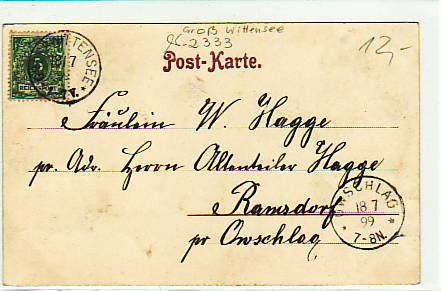 Groß Wittensee
2333
12,-
TENSEE
18 7
5
Post-Karte.
Fräulein W. Hagge
pr. Adr. Herrn Altenteiler Hagge
Ramsdorf
pr Owschlag
OWSCHLAG
18 7
99
* 7-8N. *